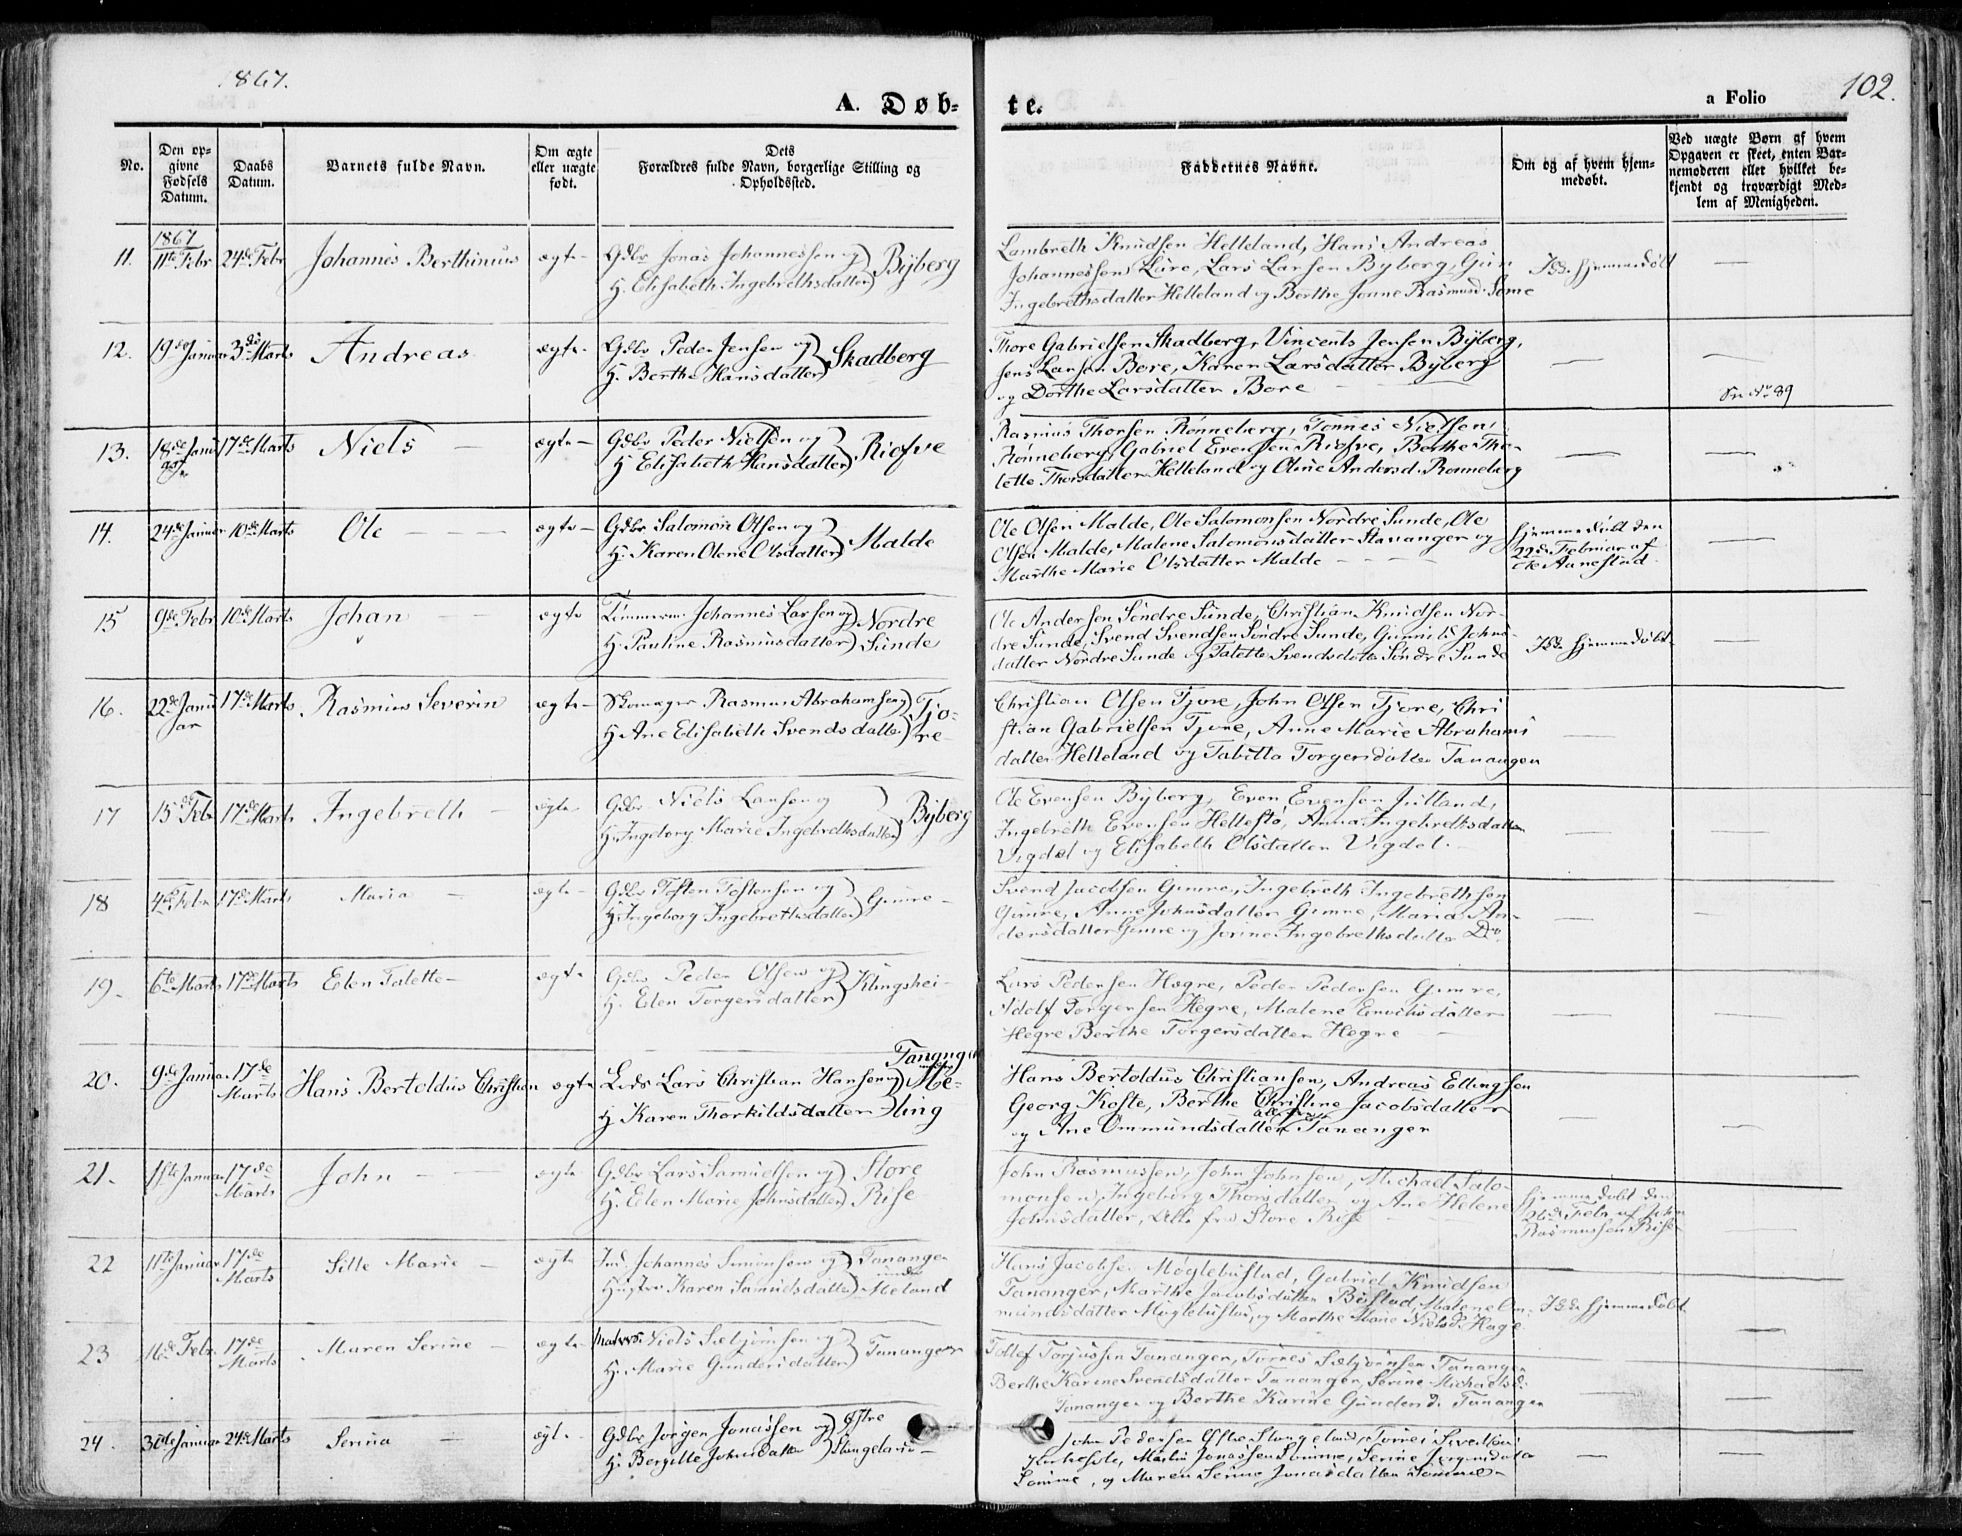 1867.
102.
A. Døb-
te.
a Folio
No.
Den op-
givne
Fødsels
Datum.
Daabs
Datum.
Barnets fulde Navn.
Om ægte
eller uægte
født.
Dets
Forældres fulde Navn, borgerlige Stilling og
Opholdssted.
Faddernes Navne.
Om og af hvem hjem-
medøbt.
Ved uægte Børn af hvem
Opgaven er skeet, enten Bar-
nemoderen eller hvilket be-
kjendt og troværdigt Med-
lem af Menigheden.
1867
11. 11te Febr 24de Febr Johannes Berthinius ægte Gdbr Jonas Johannessen og
H. Elisabeth Ingebrethsdatter Byberg
Lambreth Knudsen Helleland, Hans Andreas
Johannessen Lure, Lars Larsen Byberg, Guri
Ingebrethsdatter Helleland og Berthe Jonne Rasmusd. Sømme
hjemmedøbt
12. 19de Januar 3de Marts Andreas ægte Gdbr Peder Jensen og
H. Berthe Hansdatter Skadberg
Thore Gabrielsen Skadberg, Vincents Jensen Byberg,
Jens Larsen Bore, Karen Larsdatter Byberg
og Dorthe Larsdatter Bore
No 89
13. 18de Janu 17de Marts Niels ægte Gdbr Peder Nielsen og
H. Elisabeth Hansdatter Risfve
Rasmus Thorsen Rønneberg, Tønnes Nielsen
Rønneberg, Gabriel Evensen Risfve, Berthe Tho-
lette Thorsdatter Helleland og Oline Andersd. Rønneberg
14. 24de Januar 10de Marts Ole ægte Gdbr Salomon Olsen og
H. Karen Olene Olsdatter Malde
Ole Olsen Malde, Ole Salomonsen Nordre Sunde, Ole
Olsen Malde, Malene Salomonsdatter Stavanger og
Marthe Marie Olsdatter Malde
hjemmedøbt den
22de Februar af
Ole Aanestad
15 9de Febr 10de Marts Johan ægte Tømmerm. Johannes Larsen og
H. Pauline Rasmusdatter Nordre
Sunde
Ole Andersen Søndre Sunde, Christian Knudsen Nor-
dre Sunde, Svend Svendsen Søndre Sunde, Gunnild Johns-
datter Nordre Sunde og Talette Svendsdatter Søndre Sunde
hjemmedøbt
16. 22de Janu
ar 17de Marts Rasmus Severin ægte Skomager Rasmus Abrahamsen
H. Ane Elisabeth Svendsdatter Tjo-
re
Christian Olsen Tjore, John Olsen Tjore, Chri
stian Gabrielsen Tjore, Anne Marie Abrahams
datter Helleland og Tabitta Torgersdatter Tananger
17 15de Febr 17de Marts Ingebreth ægte Gdbr Niels Larsen og
H. Ingeborg Marie Ingebrethsdatter Byberg
Ole Evensen Byberg, Even Evensen Jutland,
Ingebreth Evensen Hellestø, Anna Ingebrethsdatter
Vigdel og Elisabeth Olsdatter Vigdel.
18 4de Febr 17de Marts Maria ægte Gdbr Tosten Tostensen og
H. Ingeborg Ingebrethsdatter Gimre
Svend Jacobsen Gimre, Ingebreth Ingebrethsen
Gimre, Anne Johnsdatter Gimre, Maria An-
dersdatter Gimre og Jorine Ingebrethsdatter Do.
19. 6te Marts 17de Marts Elen Talette ægte Gdbr Peder Olsen og
H. Elen Torgersdatter Klingshei
Lars Pedersen Hogre, Peder Pedersen Gimre,
Adolf Torgersen Hegre, Malene Enochsdatter
Hegre Berthe Torgersdatter Hegre
20. 9de Januar 17de
Marts Hans Bertoldus Christian ægte Lods Lars Christian Hansen og
H. Karen Thorkildsdatter Tananger
Me-
ling
Hans Bertoldus Christiansen, Andreas Ellingsen
Georg Koste, Berthe Christine Jacobsdatter
og Ane Ommundsdatter Tananger
21. 1ste Januar 17de
Marts John ægte Gdbr Lars Samuelsen og
H. Elen Marie Johnsdatter Store
Rise
John Rasmussen, John Johnsen, Michael Salo-
monsen, Ingeborg Thorsdatter og Ane Helene
Johnsdatter, alle fra Store Rise
hjemmedøbt den
26de Febr af John
Rasmussen Rise
22 11te Januar 17de
Marts Sille Marie ægte Ind. Johannes Simonsen og
Hustru Karen Samuelsdatter Tananger
under
Meland
Hans Jacobsen Møglebustad, Gabriel Knudsen
Tananger, Marthe Jacobsdatter Bustad, Malene Om-
mundsdatter Møglebustad, og Marthe Marie Nielsd. Hage
hjemmedøbt
23 16de Febr 17de
Marts Maren Serine ægte Matros Niels Sæbjørnsen og
H. Marie Gundersdatter Tananger
Tollef Torjussen Tananger, Tønnes Sæbjørnsen Tananger
Berthe Karine Svendsdatter Tananger, Serine Michaelsd.
Tananger og Berthe Karine Gundersd. Tananger
24. 30te Januar 24de Marts Serina ægte Gdbr Jørgen Jonassen og
H. Bergitte Johnsdatter Østre
Stangeland
John Pedersen Østre Stangeland, Tørres Sivertsen
Martin Jonassen Sømme, Serine Jørgensdatter
Sømme, og Maren Serine Jonasdatter Sømme